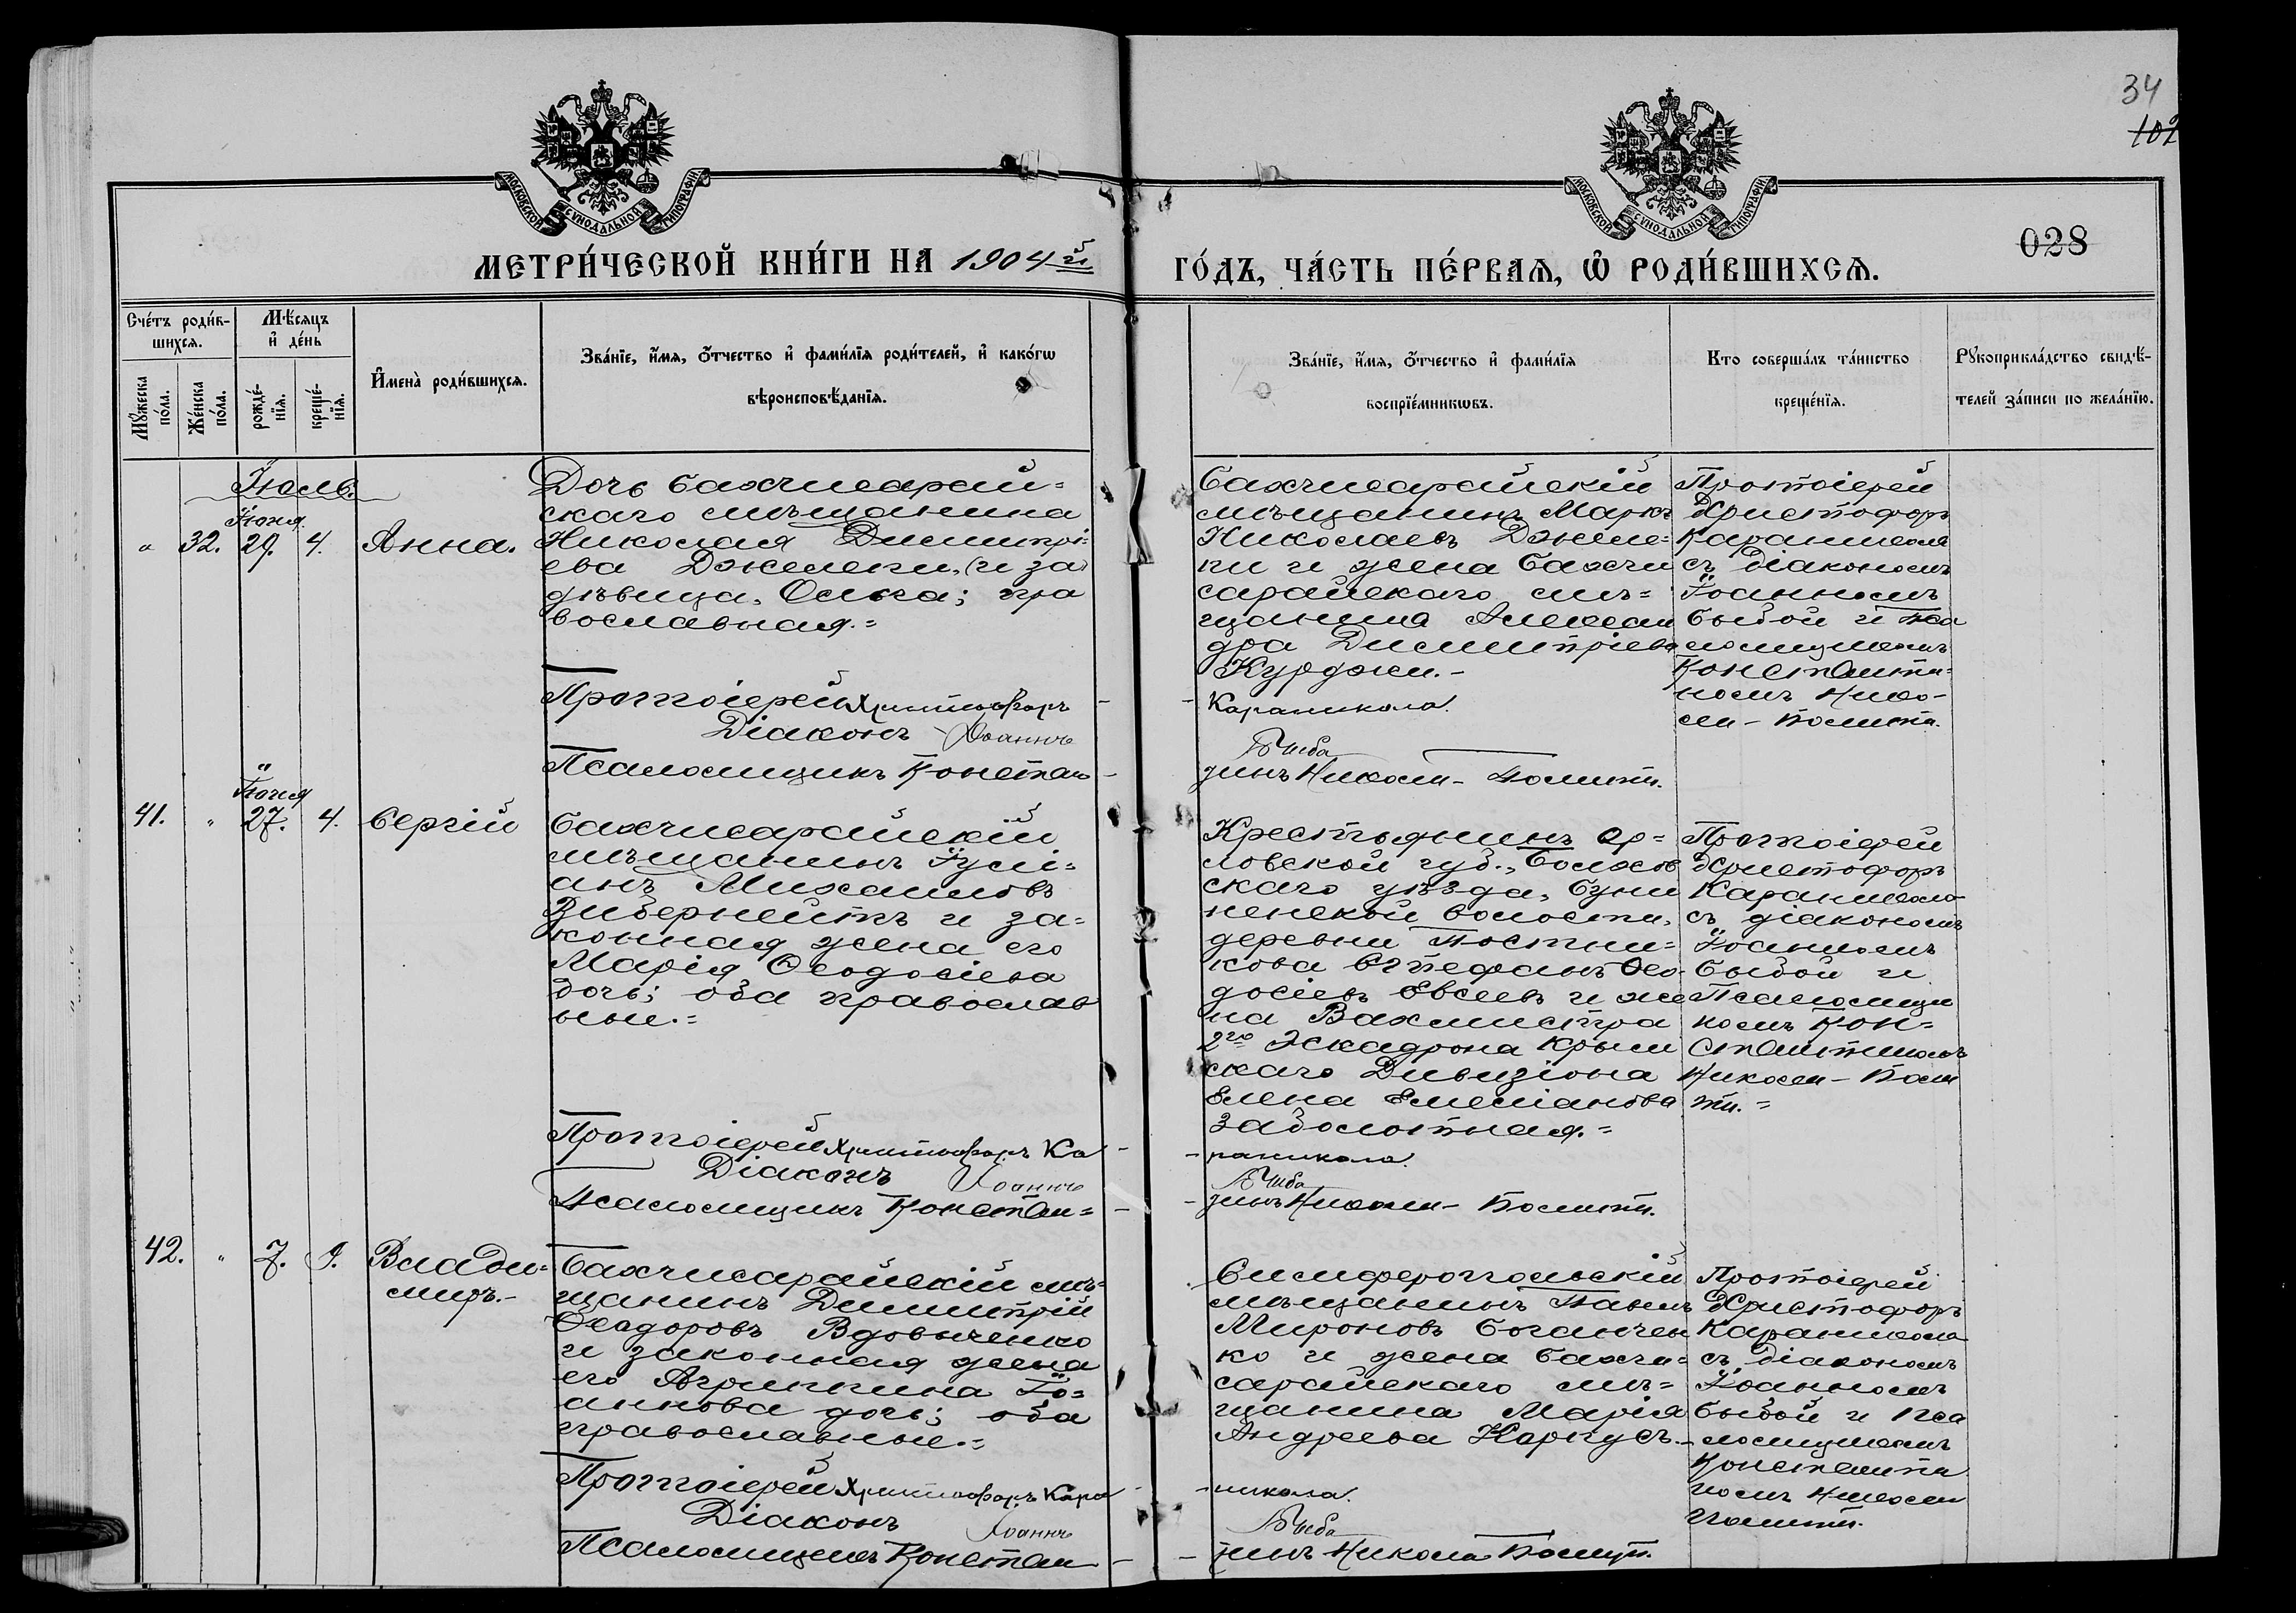 34
102
МОСКОВСКОЙ СѴНОДАЛЬНОЙ ТИПОГРАФІИ
МОСКОВСКОЙ СѴНОДАЛЬНОЙ ТИПОГРАФІИ
028
МЕТРИ́ЧЕСКОЙ КНИ́ГИ НА 1904й
ГО́ДЪ, ЧА́СТЬ ПЕ́РВАѦ, Ѿ РОДИ́ВШИХСѦ.
Сче́тъ роди́в-
шихсѧ.
Мꙋ́жеска
по́ла.
Же́нска
по́ла.
Мѣ́сяцъ
и҆ де́нь
рожде́-
нїѧ.
креще́-
нїѧ.
И҆мена̀ роди́вшихсѧ.
Зва́нїе, и҆́мѧ, ѻ҆́тчество и҆ фами́лїѧ роди́телей, и҆ како́гѡ
вѣроисповѣ́данїѧ.
Зва́нїе, и҆́мѧ, ѻ҆́тчество и҆ фами́лїѧ
воспрїе́мникѡвъ.
Кто соверша́лъ та́инство
креще́нїѧ.
Рꙋкоприкла́дство свидѣ́-
телей за́писи по жела́нїю.
Іюль.
Іюня
„ 32. 29. 4. Анна.
Дочь Бахчисарай=
скаго мѣщанина
Николая Димитрі=
ева Джелеки, (и за)
дѣвица, Ольга; пра
вославная.=
Бахчисарайскій
мѣщанинъ Маркъ
Николаевъ Джеле=
ки и жена Бахчи
сарайскаго мѣ=
щанина Алексан
дра Димитріева
Курджи.-
Протоіерей
Христофоръ
Караникола
съ Діакономъ
Іоанномъ
Быбой и Пса
ломщикомъ
Константи=
номъ Нико-
ли-Политъ.
Протоіерей Христофоръ - - Караникола.
Діаконъ Іоаннъ Быба
Псаломщикъ Констан- тинъ Николи- Полити.
Іюня
41. „ 27. 4. Сергій
Бахчисарайскій
мѣщанинъ Іулі=
анъ Михаиловъ
Зибернейтъ и за=
конная жена его
Марія Ѳеодосіева
дочь; оба православ
ные.=
Крестьянинъ Ор=
ловской губ., Болхов
скаго уѣзда,
волости,
деревни Постни=
кова Стефанъ Ѳео-
досіевъ Евсеевъ и же
на Вахмистра
2го Эскадрона Крым
скаго Дивизіона
Елена Емеліанова
Заболотная.=
Протоіерей
Христофоръ
Караникола
съ діакономъ
Іоанномъ
Быбой и
Псаломщи
комъ Кон=
стантиномъ
Николи-Поли
ти.=
Протоіерей Христофоръ Ка - - раникола.
Діаконъ Іоаннъ Быба
Псаломщикъ Констан= - - тинъ Николи- Полити.
42. „ 7. 9. Влади=
миръ.-
Бахчисарайскій мѣ=
щанинъ Димитрій
Ѳеодоровъ Вдовыченко
и законная жена
его Агриппина Іо=
аннова дочь; оба
православные.=
Симферопольскій
мѣщанинъ Павелъ
Мироновъ Боганчен
ко и жена Бахчи=
сарайскаго мѣ=
щанина Марія
Андреева Карпусъ.-
Протоіерей
Христофоръ
Караникола
съ Діакономъ
Іоанномъ
Быбой и Пса
ломщикомъ
Константи
номъ Николи
Полити.
Протоіерей Христофоръ Кара - - никола.
Діаконъ Іоаннъ Быба
Псаломщикъ Констан - - тинъ Никола Полити.